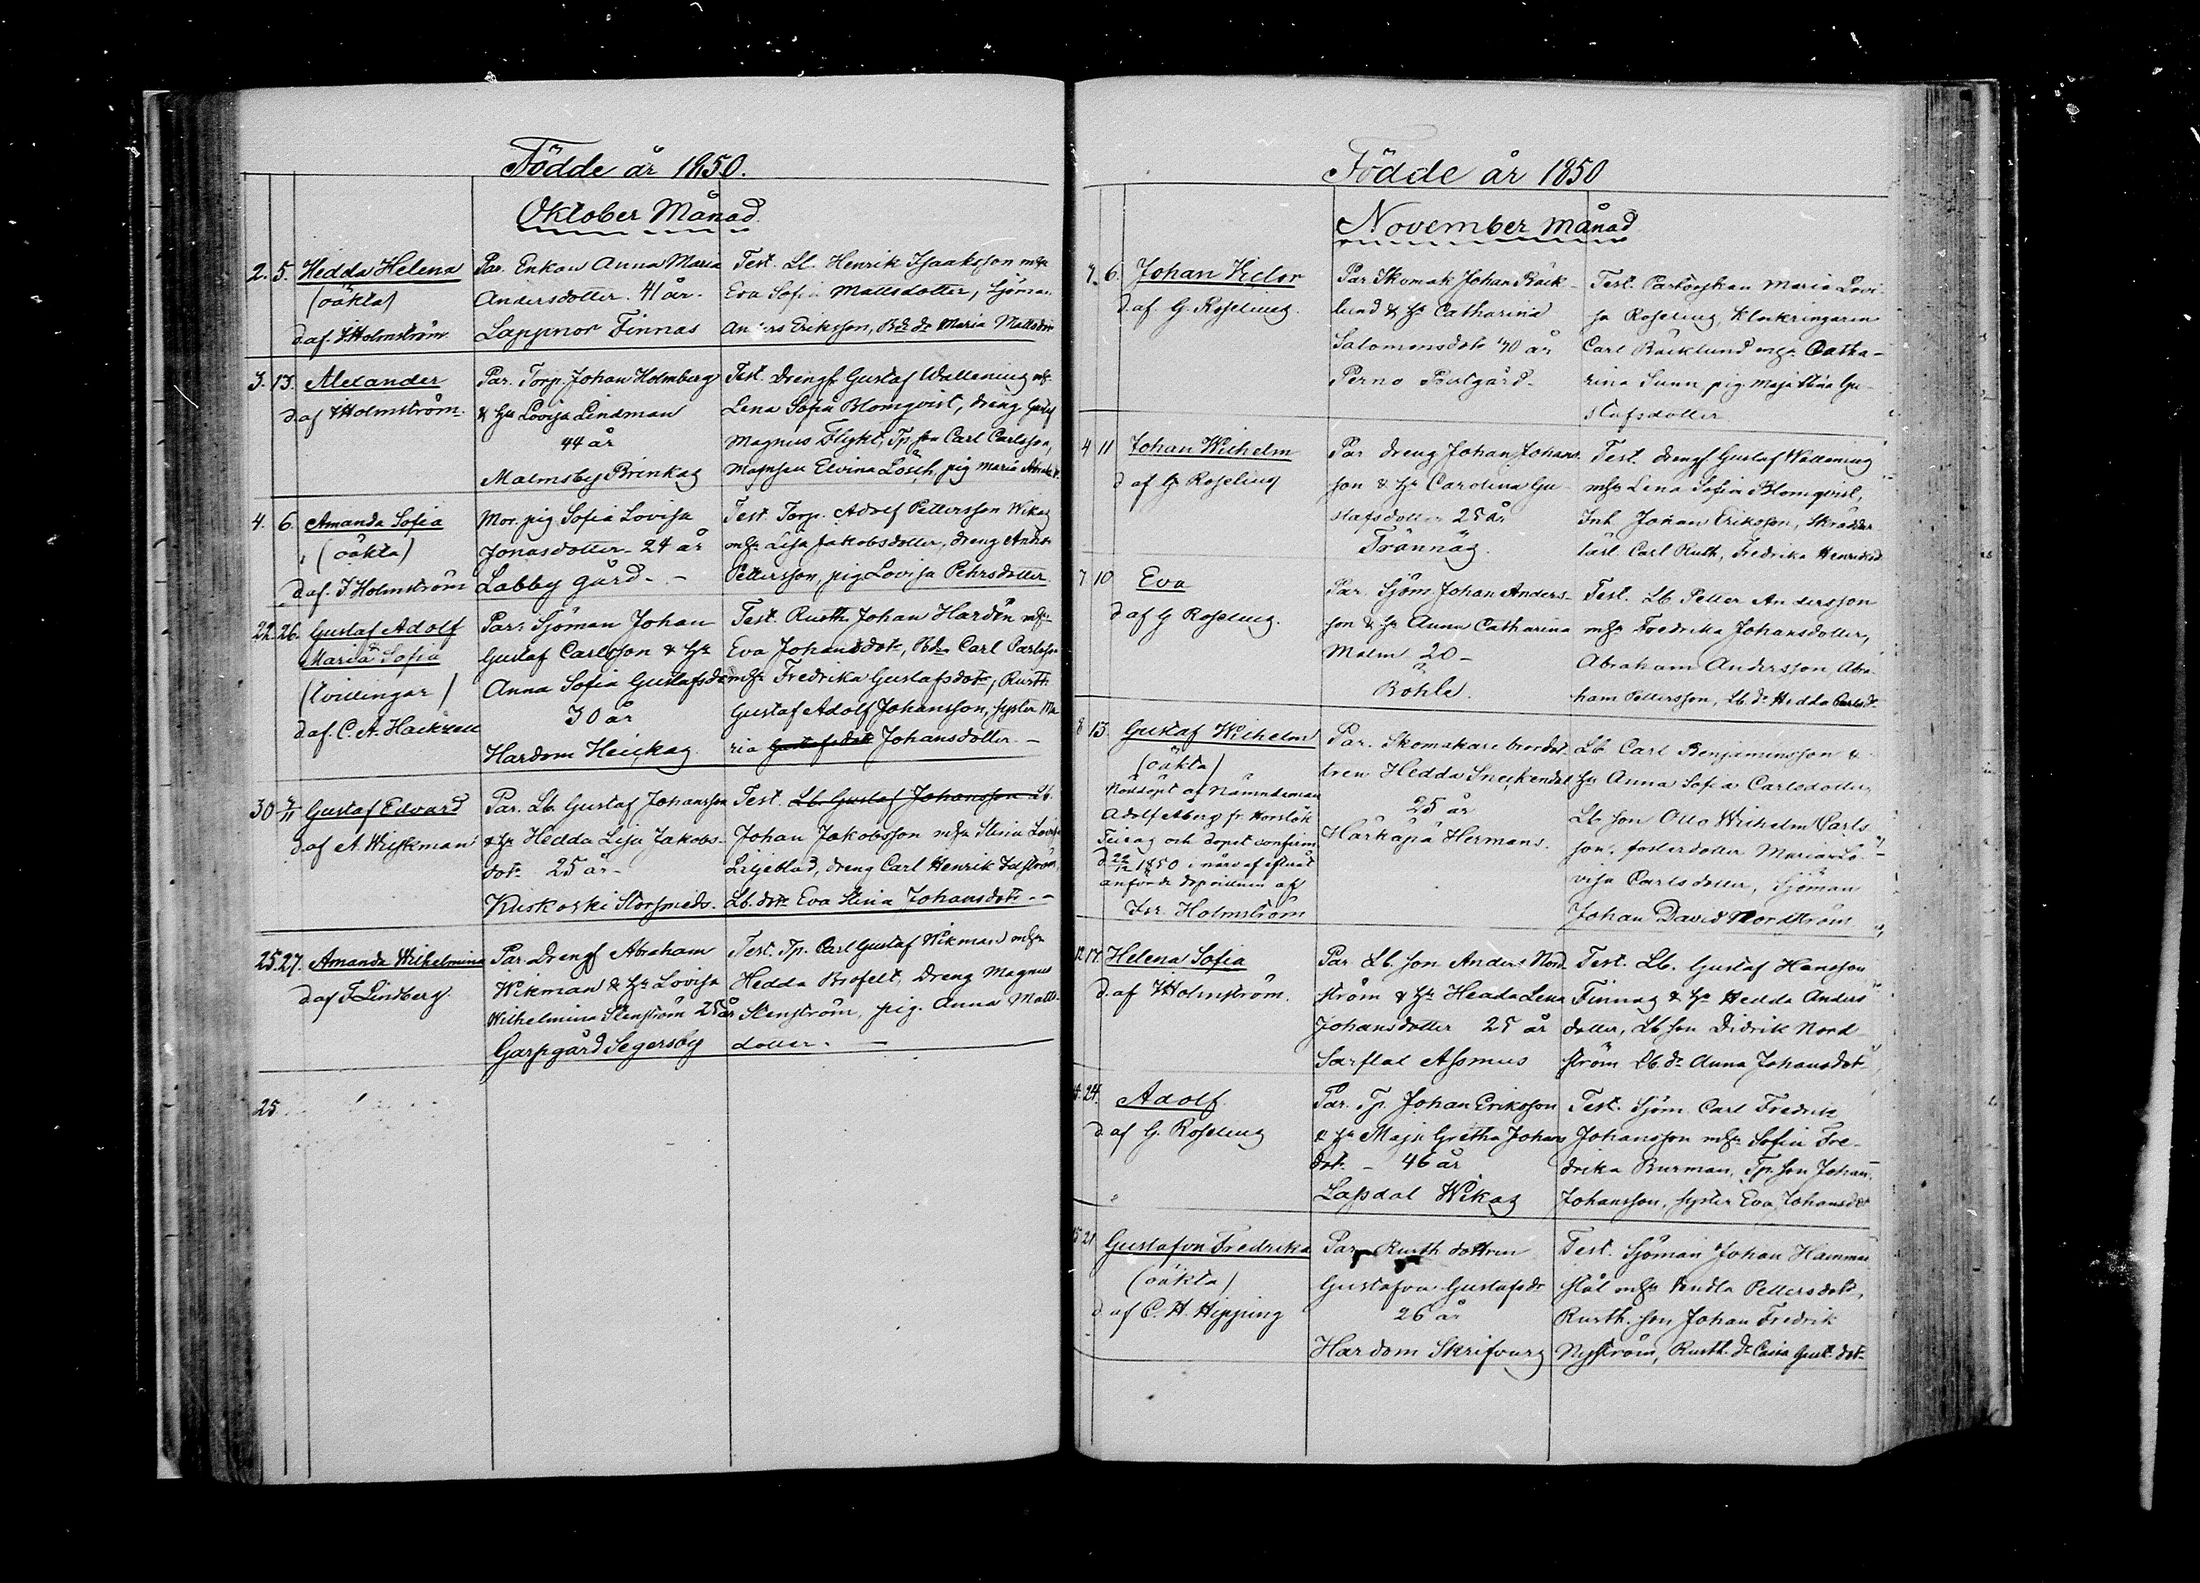 Födde år 1850.
Oktober Månad
2. 5. Hedda Helena
(oäkta)
d af. I Holmström
Par. Enkan Anna Maria
Andersdotter. 41 år.
Lappnor Finnas
Test. Lb. Henrik Isaaksson m hu
Eva Sofia Mattsdotter, Sjöman
Anders Eriksson, Bd dr Maria Mattsdotr
3. 13. Alexander
d af I Holmström
Par. Torp. Johan Holmberg
& hu Lovisa Lindman
44 år
Malmsby Brinkas
Test. Drengf Gustaf Wallening m hu
Lena Sofia Blomqvist, dreng Gustaf
Magnus Flykt, Tp son Carl Carlsson,
Elvina Lösth, pig Maria
4. 6. Amanda Sofia
(oäkta)
d af. I Holmström
Mor. pig Sofia Lovisa
Jonasdotter - 24 år
Labby gård. -
Test. Torp. Adolf Pettersson Wikas
m hu Lisa Jakobsdotter, dreng Anders
Pettersson, pig Lovisa Pehrsdotter
22. 26. Gustaf Adolf
Maria Sofia
(tvillingar)
d af. C. A. Hackzell
Par: Sjöman Johan
Gustaf Carlsson & hu
Anna Sofia Gustafsdr
30 år
Hardom Heickas
Test. Rusth. Johan Hardén m hu
Eva Johansdotr, Bdr Carl Carlsson
m hu Fredrika Gustafsdotr, Rusth
Gustaf Adolf Johansson, syster Ma
ria Gustafsdotr Johansdotter. -
30 3/11 Gustaf Edvard
d af A Wiskman
Par. Lb. Gustaf Johansson
& hu Hedda Lisa Jakobs-
dotr 25 år -
Kuskoski Storsmeds.
Test. Lb. Gustaf Johansson Lb.
Johan Jakobsson m hu Stina Lovisa
Liljeblad, dreng Carl Henrik
Lb. dotr Eva Stina Johansdotr. -
25. 27. Amanda Wilhelmina
d af F Lindberg.
Par. Drengf Abraham
Wikman & hu Lovisa
Wilhelmina Stenström 25 år
Garpgård Segersby
Test. Tp. Carl Gustaf Wikman m hu
Hedda Brofelt, Dreng Magnus
Stenström, pig. Anna Matts-
dotter. -
25
Födde år 1850
November Månad
6. Johan Victor
d af G. Roseling.
Par Skomak Johan Bäck-
lund & hu Catharina
Salomonsdotr 40 år
Perno Prestgård.
Test. Pastorskan Maria Lovi
sa Roseling, Klockringaren
Carl Bäcklund m hu Catha-
rina Sunn, pig. Maja Stina Gu-
stafsdotter
4 11 Johan Wilhelm
d af G Roseling
Par dreng Johan Johans-
son & hu Carolina Gu-
stafsdotter 25 år
Trännäs.
Test. Drengf Gustaf Wallening
m hu Lena Sofia Blomqvist,
Inh Johan Eriksson, Skräddar
lärl. Carl Ruth, Fredrika Henriksd
7 10 Eva
d af G Roseling.
Par Sjöm Johan Anders-
son & hu Anna Catharina
Malm 20 -
Böhle.
Test. Lb Petter Andersson
m hu Fredrika Johansdotter,
Abraham Andersson, Abra
ham Pettersson, Lb. dr Hedda Carlsdr
8 13. Gustaf Wilhelm
(oäkta)
Nöddöpt af Nämndeman
Adolf Åberg fr. Horslök
och dopet confirm
d 22/12 1850 i närv af ofvan
anförde dopvittnen af
Isr. Holmström
Par. Skomakare
tren Hedda
25 år
Härkäpä Hermans.
Lb. Carl Benjaminsson &
hu Anna Sofia Carlsdotter,
Lb son Otto Wilhelm Carls
son, fosterdotter Maria Lo-
visa Carlsdotter, Sjöman
Johan David Nordström
12 17. Helena Sofia
d. af I Holmström.
Par Lb. son Anders Nord
ström & hu Hedda Lena
Johansdotter 25 år
Sarflal Assmus
Test. Lb. Gustaf Hansson
Finnas & hu Hedda Anders
dotter, Lb son Didrik Nord-
ström Lb. dr Anna Johansdotr
24. Adolf
d af G. Roseling
Par. Tp. Johan Eriksson
& hu Maja Gretha Johans
dotr - 46 år
Lapdal Wikas
Test. Sjöm. Carl Fredrik
Johansson m hu Sofia Fre-
drika Burman, Tp. son Johan
Johansson, syster Eva Johansdotr
15 21 Gustafva Fredrika
(oäkta)
d af C. H. Hipping
Par Rusth dottren
Gustafva Gustafsdr
26 år
Hardom Skrifvars
Test. Sjöman Johan Hammar
stål m hu Vendla Pettersdotr,
Rusth. son Johan Fredrik
Nyström, Rusth. dr Caisa Gust. dotr